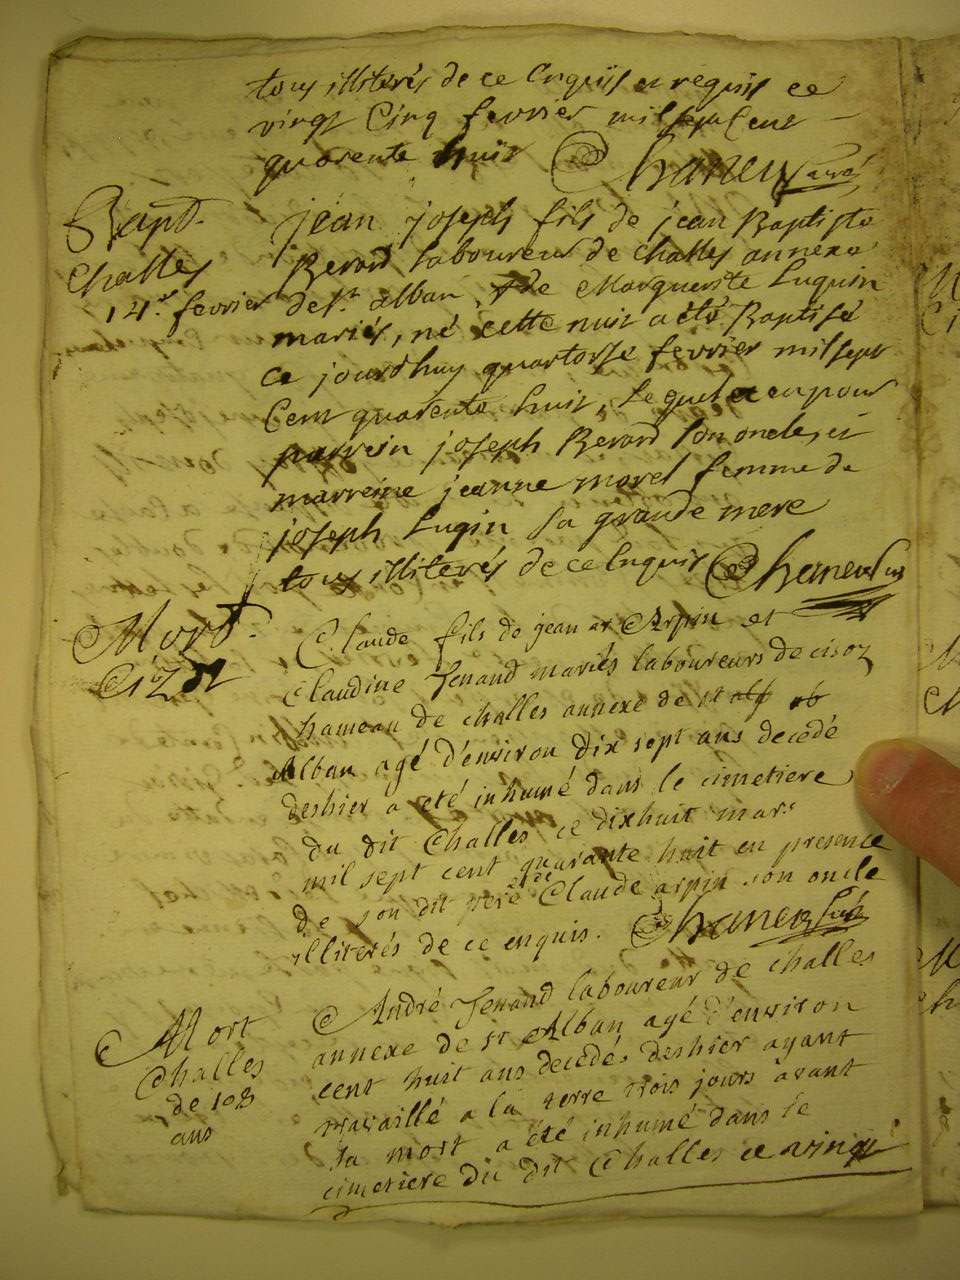 tous illiterés de ce enquis et requis ce
vingt Cinq fevrier mil sept Cent
quarente huit Chanen Curé
Bapt.
Challes
14.e fevrier
jean joseph fils de jean Baptiste
Berard laboureur de Challes annexe
de st. alban, & de Marguerite Luguin
mariés, né cette nuit a été Baptisé
Ce jourdhuy quartorse fevrier mil sept
Cent quarente huit, Lequel a eu pour
parrein joseph Berard son oncle, et
marreine jeanne morel femme de
joseph Lugin sa grande mere
tous illiterés de ce Enquis Chanen Curé
Mort.
Claude fils de jean Arpin et
Claudine Tenand mariés laboureurs de cisoz
hameau de challes annexe de st
Alban agé d'environ dix sept ans decedé
deshier a eté inhumé dans le cimetiere
du dit Challes ce dixhuit mars
mil sept cent quarante huit en presence
de son dit pere et de Claude arpin son oncle
illiterés de ce enquis. Chanen Curé
Mort
Challes
de 108
ans
André Tenand laboureur de Challes
annexe de st Alban agé d'environ
cent huit ans decedés deshier ayant
travaillé a la terre trois jours avant
sa mort a été inhumé dans le
cimetiere du dit Challes ce vingt